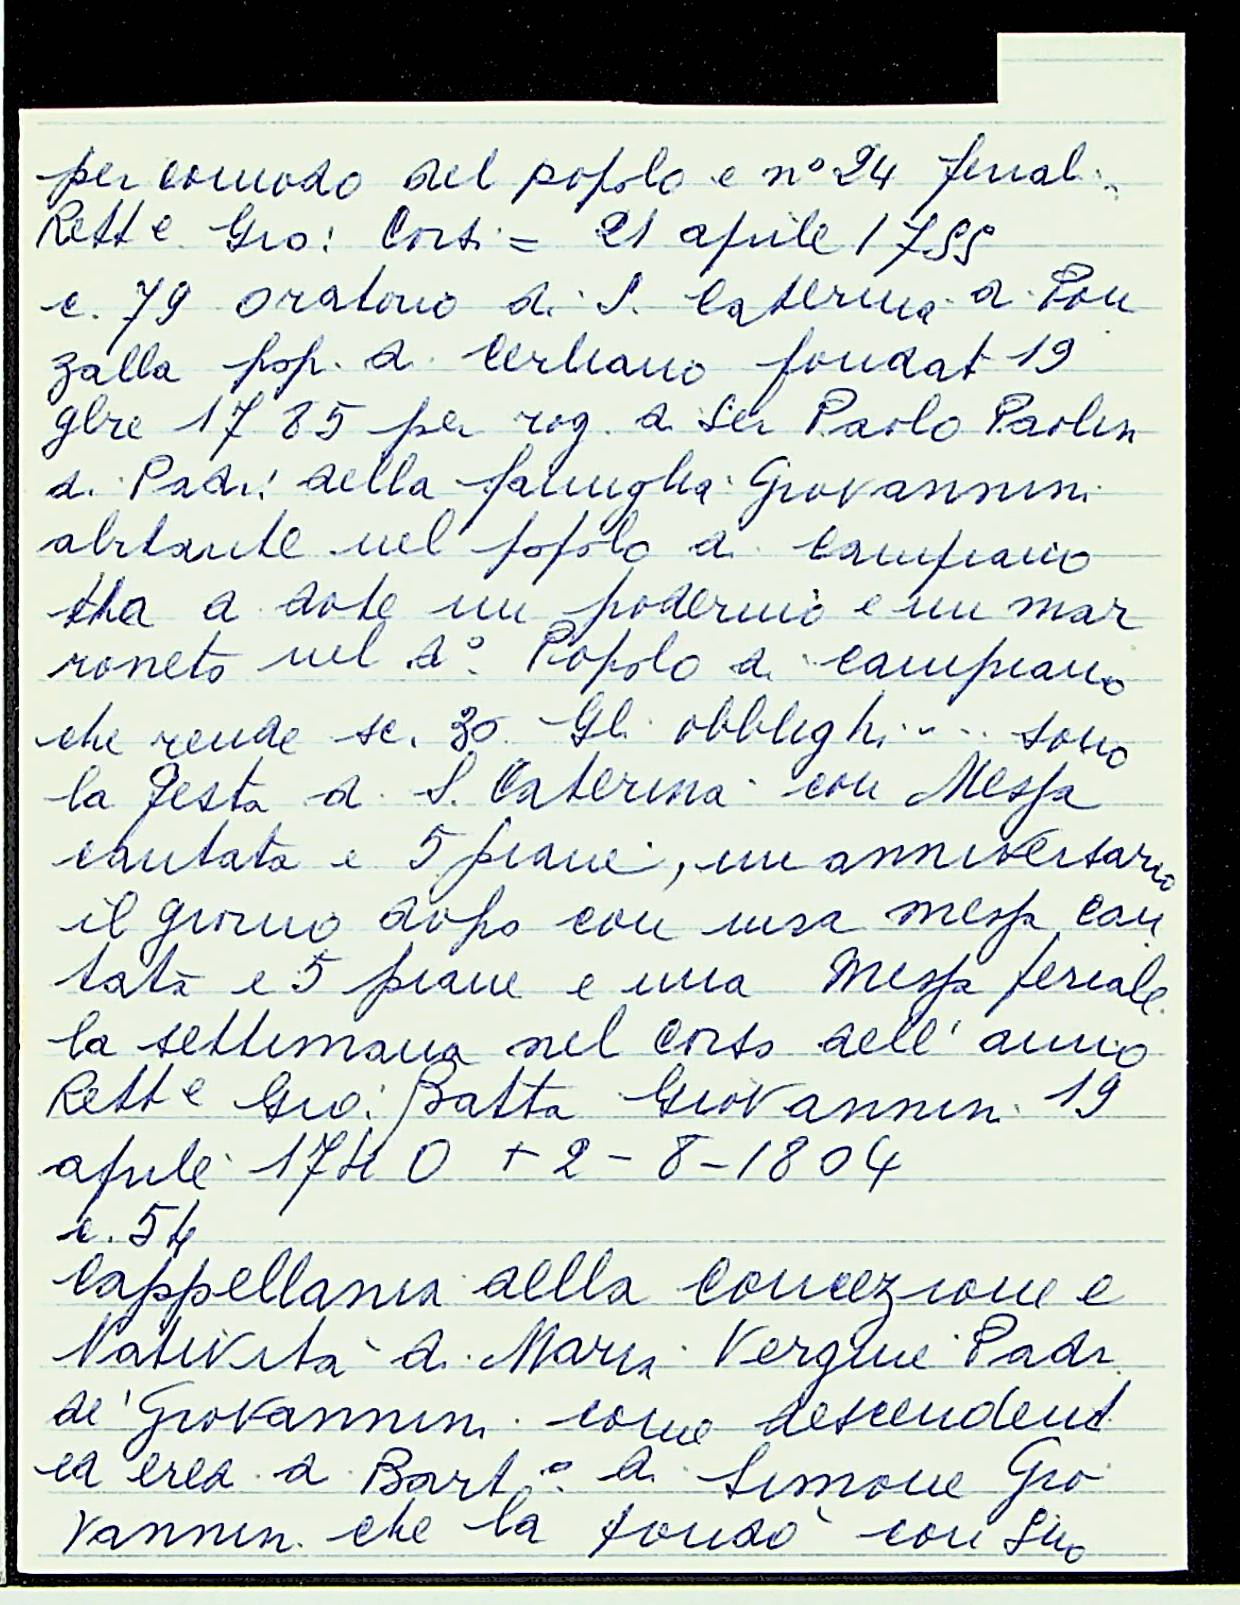 per comodo del popolo e n° 24 feriali.
Rett e Gio: Corsi = 21 aprile 1755
c. 79 oratorio di S. Caterina a Pon
zalla pop. di Cerliano fondat 19
9bre 1785 per rog. di Ser Paolo Paolin
di. Padri della famiglia Giovannini
abitante nel popolo di Campiano
tha a dote un poderino e un mar
roneto nel d°. Popolo di Campiano
che rende sc. 30 Gli obblighi ... sono
la Festa di S. Caterina con Messa
cantata e 5 piane, un anniversario
il giorno dopo con una messa can
tata e 5 piane e una Messa feriale
la settimana nel corso dell' anno
Rett e Gio: Batta Giovannini 19
aprile 1740 + 2-8-1804
c. 54
Cappellania dellla Concezione e
Natività di Maria Vergine Padr
de' Giovannini come descendent
ed eredi di Bart.° di Simone Gio
vannini che la fondò con suo